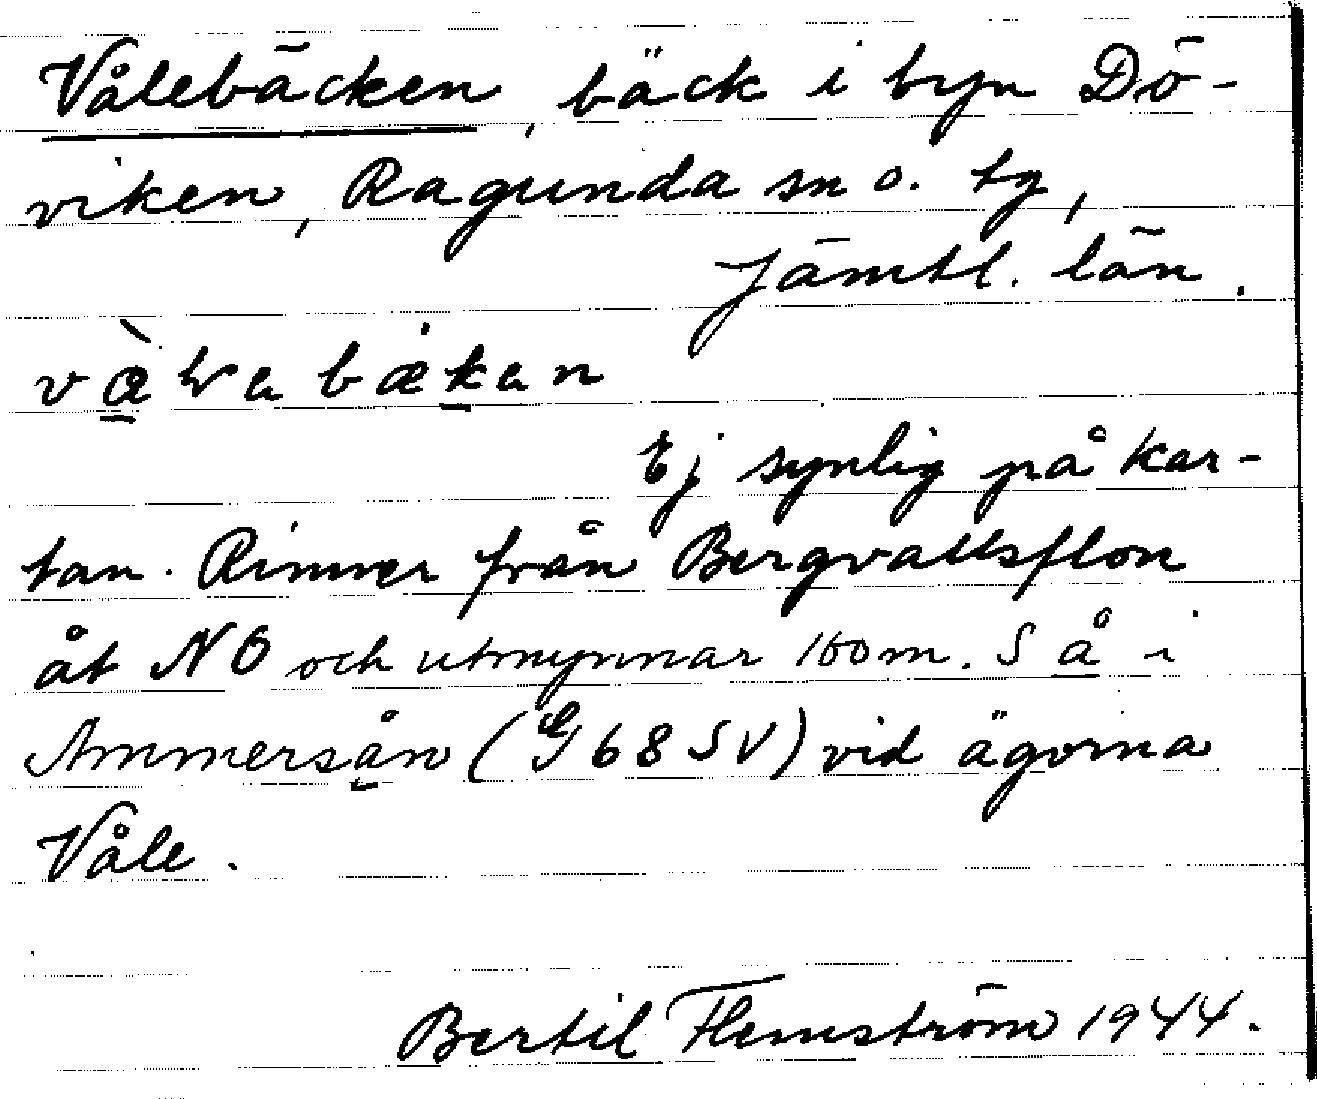 Vålebäcken, bäck i byn Dö-
viken, Ragunda sn o. tg,
Jämtl. län.
Ej synlig på kar-
tan. Rinner från Bergvattsflon
åt NO och utmynnar 100m. S å i
Ammersån (G 68 SV) vid ägorna
Våle.
Bertil Flemström 1944.